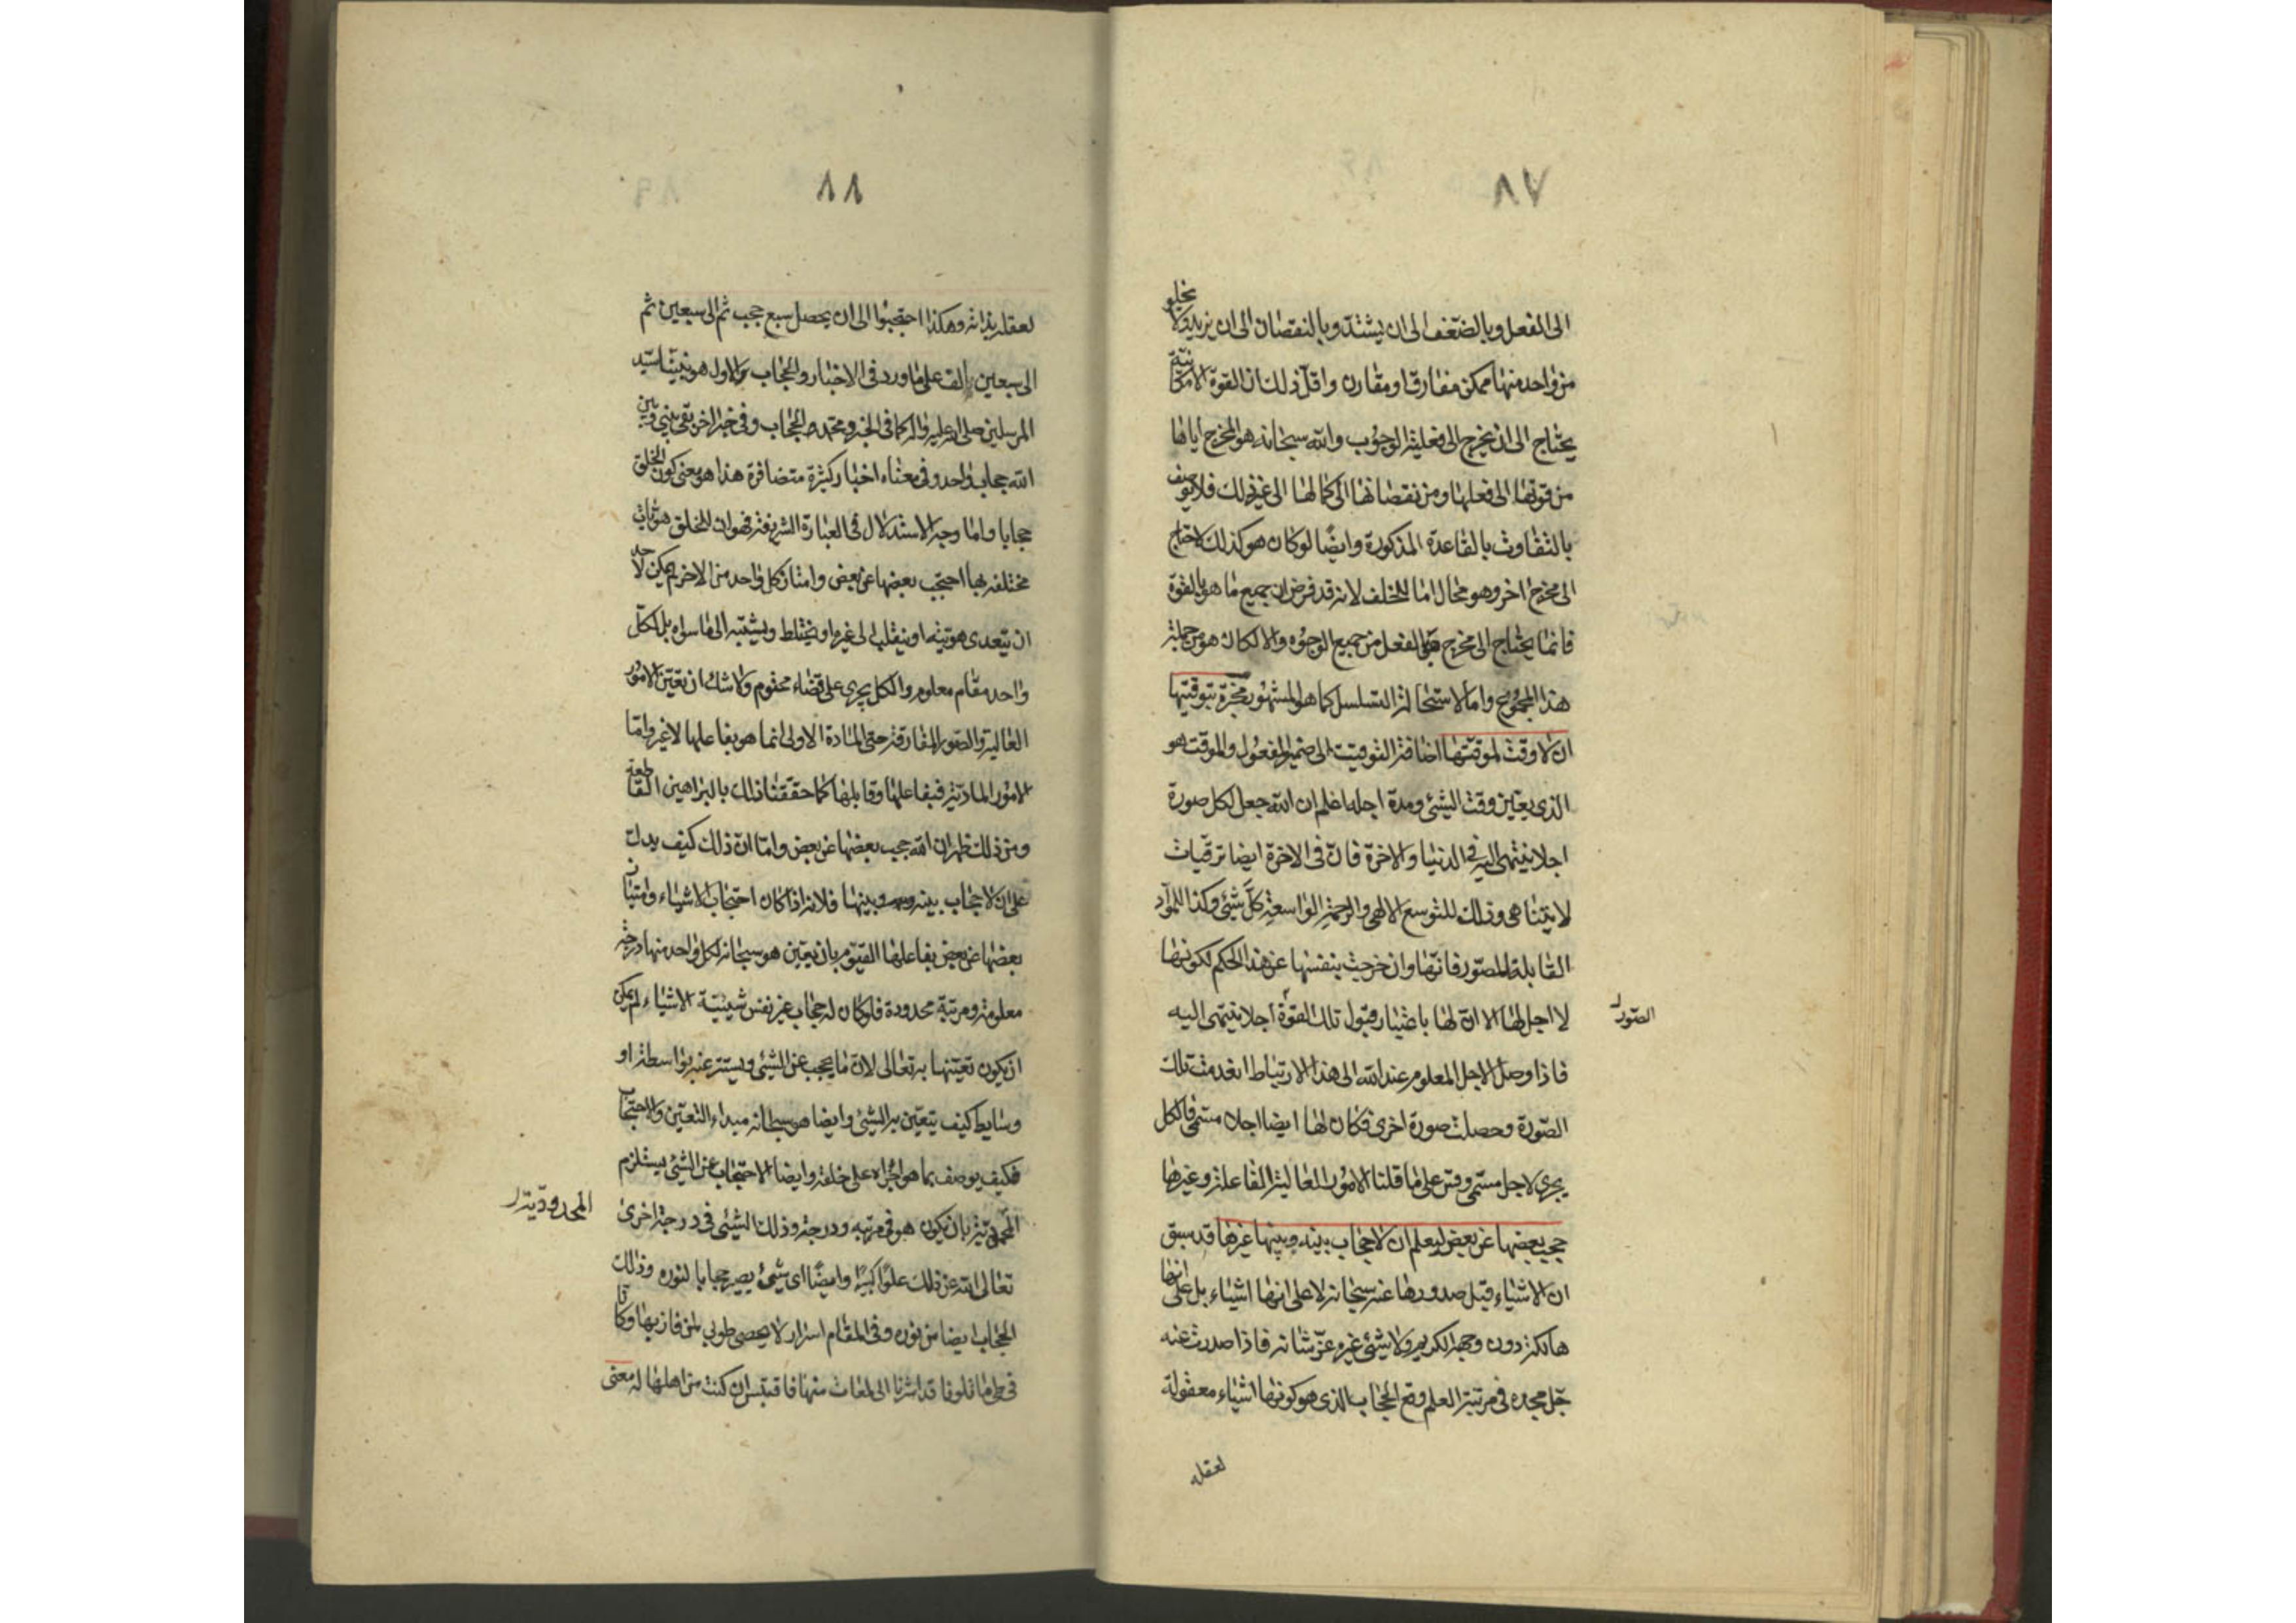 ٨٧
الى الفعل وبالضعف الى ان يشتد وبالنقصان الى ان يزيد ولا يخلو
من واحد منها ممكن مفارق او مقارن واقل ذلك ان القوة الامكانية
يحتاج الى ان يخرج الى فعلية الوجوب والله سبحانه هو المخرج اياها
من قوتها الى فعلها ومن نقصانها الى كمالها الى غير ذلك فلا يوصف
بالتفاوت بالقاعدة المذكورة وايضا لو كان هو كذلك لاحتاج
الى مخرج اخر وهو محال اما للخلف لانه قد فرض ان جميع ما هو بالقوة
فانما يحتاج الى مخرج هو بالفعل من جميع الوجوه والا لكان هو من جملة
هذا المجموع واما لاستحالة التسلسل كما هو المشهور مخبرة بتوقيتها
ان لا وقت لموقتها اضافة التوقيت الى ضمير المفعول والموقت هو
الذى يعين وقت الشئ ومدة اجله اعلم ان الله جعل لكل صورة
اجلا ينتهى اليه فى الدنيا والاخرة فان فى الاخرة ايضا ترقيات
لا يتناهى وذلك للتوسع الالهى والرحمة الواسعة كل شئ وكذا المواد
القابلة للصور فانها وان خرجت بنفسها عن هذا الحكم لكونها
لا اجل لها الا ان لها باعتبار قبول تلك القوة اجلا ينتهى اليه
الصور
فاذا وصل الاجل المعلوم عند الله الى هذا الارتباط انعدمت تلك
الصورة وحصلت صورة اخرى فكان لها ايضا اجلا مسمى فالكل
يجرى لاجل مسمى وقس على ما قلنا الامور العالية الفاعلة وغيرها
حجب بعضها عن بعض ليعلم ان لا حجاب بينه وبينها غيرها قد سبق
ان الاشياء قبل صدورها عنه سبحانه لا على انها اشياء بل على انها
هالكة دون وجهه الكريم ولا شئ غيره عز شانه فاذا صدرت عنه
جل مجده فى مرتبة العلم وقع الحجاب الذى هو كونها اشياء معقولة
لعقله
٨٨
لعقله بذاته وهكذا احتجبوا الى ان يحصل سبع حجب ثم الى سبعين ثم
الى سبعين الف على ما ورد فى الاخبار والحجاب الاول هو نبينا سيد
المرسلين صلى الله عليه واله كما فى الخبر ومحمد الحجاب وفى خبر اخر بقى بينى وبين
الله حجاب واحد وفى معناه اخبار كثيرة متضافرة هذا هو معنى كون الخلق
حجابا واما وجه الاستدلال فى العبارة الشريفة فهو ان للخلق هويات
مختلفة بها احتجب بعضها عن بعض وامتاز كل واحد من الاخر لم يمكن لاحد
ان يتعدى هويته او ينقلب الى غيره او يختلط ويشتبه الى ما سواه بل لكل
واحد مقام معلوم والكل يجرى على قضاء محتوم ولا شك ان تعين الامور
العالية والصور المفارقة حتى المادة الاولى انما هو بفاعلها لا غير واما
الامور المادية فبفاعلها وقابلها كما حققنا ذلك بالبراهين القاطعة
ومن ذلك ظهر ان الله حجب بعضها عن بعض واما ان ذلك كيف يدل
على ان لا حجاب بينه وبينها فلانه اذا كان احتجاب الاشياء وامتياز
بعضها عن بعض بفاعلها القيوم بان يعين هو سبحانه لكل واحد منها درجة
معلومة ومرتبة محدودة فلو كان له حجاب غير نفس شيئية الاشياء لم يمكن
ان يكون تعينها به تعالى لان ما يحجب عن الشئ ويستتر عنه بواسطة او
وسايط كيف يتعين به الشئ وايضا هو سبحانه مبداء التعين والاحتجاب
فكيف يوصف بما هو اجراه على خلقه وايضا الاحتجاب عن الشئ يستلزم
بان يكون هو فى مرتبة ودرجة وذلك الشئ فى درجة اخرى
المحدودية
تعالى الله عن ذلك علوا كبيرا وايضا اى شئ يصير حجابا لنوره وذلك
الحجاب ايضا من نوره وفى المقام اسرار لا يحصى طوبى لمن فاز بها وكانا
فى طى ما تلونا قد اشرنا الى لمعات منها فاقتبس ان كنت من اهلها له معنى